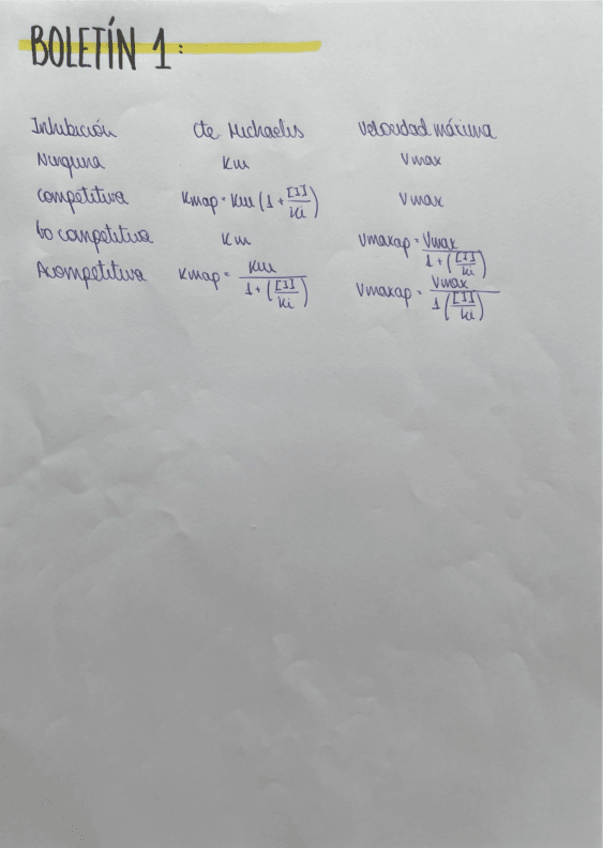 BOLETÍN 1:
Inhibición cte Michaelis Velocidad máxima
Ninguna Km Vmax
Competitiva Kmap = Km (1 + [I]/Ki) Vmax
No competitiva Km Vmaxap = Vmax/1 + ([I]/Ki)
Acompetitiva Kmap = Km/1 + ([I]/Ki) Vmaxap = Vmax/1 ([I]/Ki)